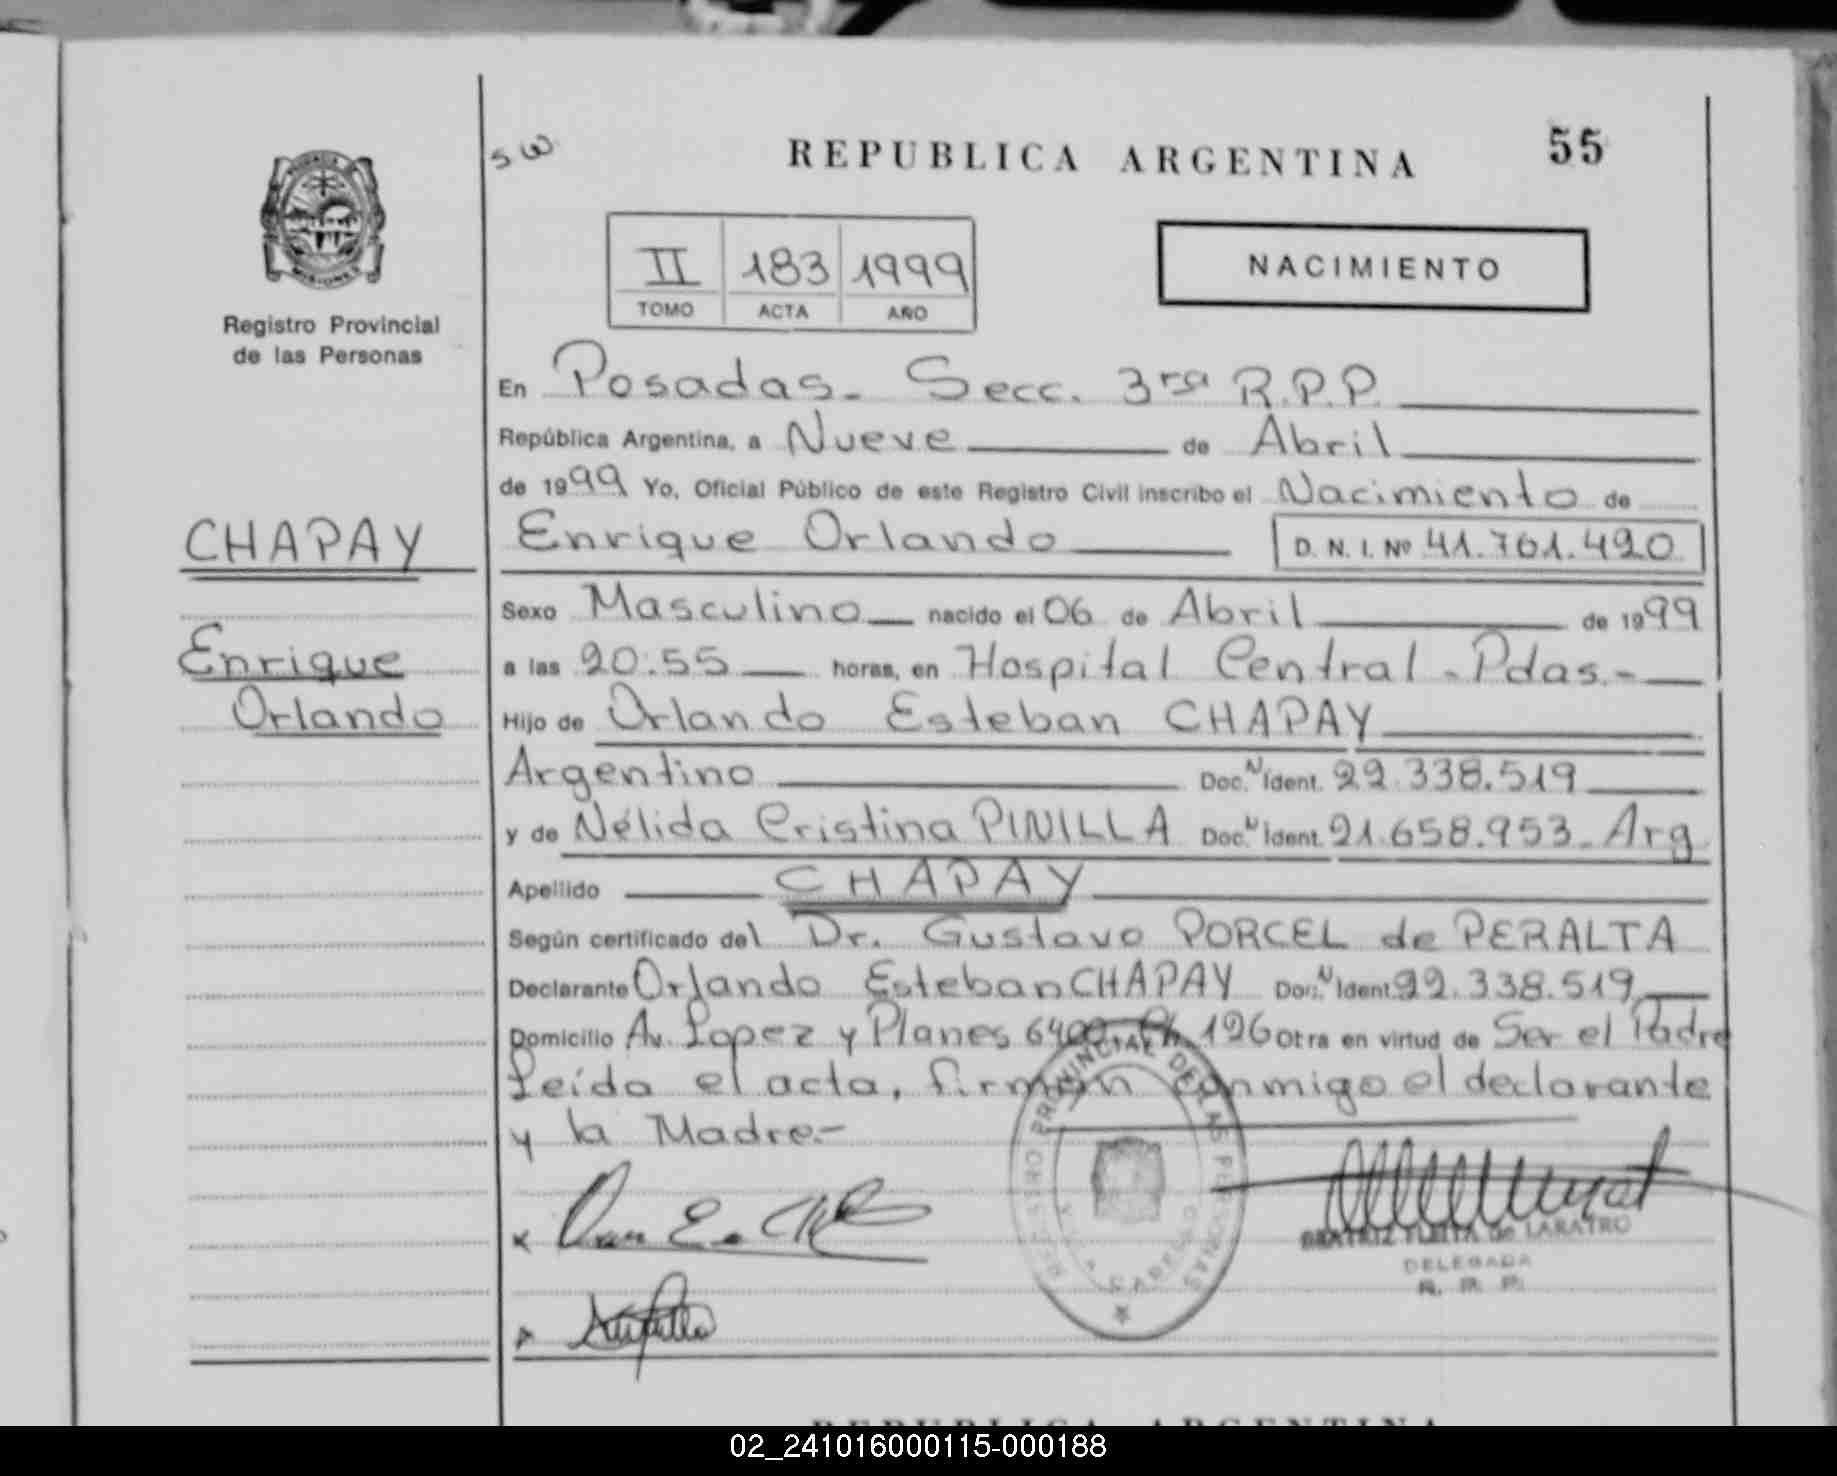 55
sw
REPUBLICA ARGENTINA
II 183 1999
TOMO ACTA AÑO
NACIMIENTO
Registro Provincial
de las Personas
En Posadas. Secc. 3ra R.P.P.
República Argentina, a Nueve de Abril
de 1999 Yo, Oficial Público de este Registro Civil inscribo el Nacimiento de
CHAPAY
Enrique Orlando D. N. I. Nº 41.761.420
Sexo Masculino nacido el 06 de Abril de 1999
Enrique
Orlando
a las 20:55 horas, en Hospital Central - Pdas.-
Hijo de Orlando Esteban CHAPAY
Argentino Doc. N Ident. 22.338.519
y de Nélida Cristina PINILLA Doc. N Ident. 21.658.953. Arg
Apellido CHAPAY
Según certificado del Dr. Gustavo PORCEL de PERALTA
Declarante Orlando Esteban CHAPAY Doc. N Ident. 22.338.519
Domicilio Av. Lopez y Planes 6400. Ch. 126 Otra en virtud de Ser el Padre
Leída el acta, firman conmigo el declarante
y la Madre.-
REGISTRO PROVINCIAL DE LAS PERSONAS
de LARATRO
DELEGADA
R. P. P.
REPUBLICA ARGENTINA
02_241016000115-000188